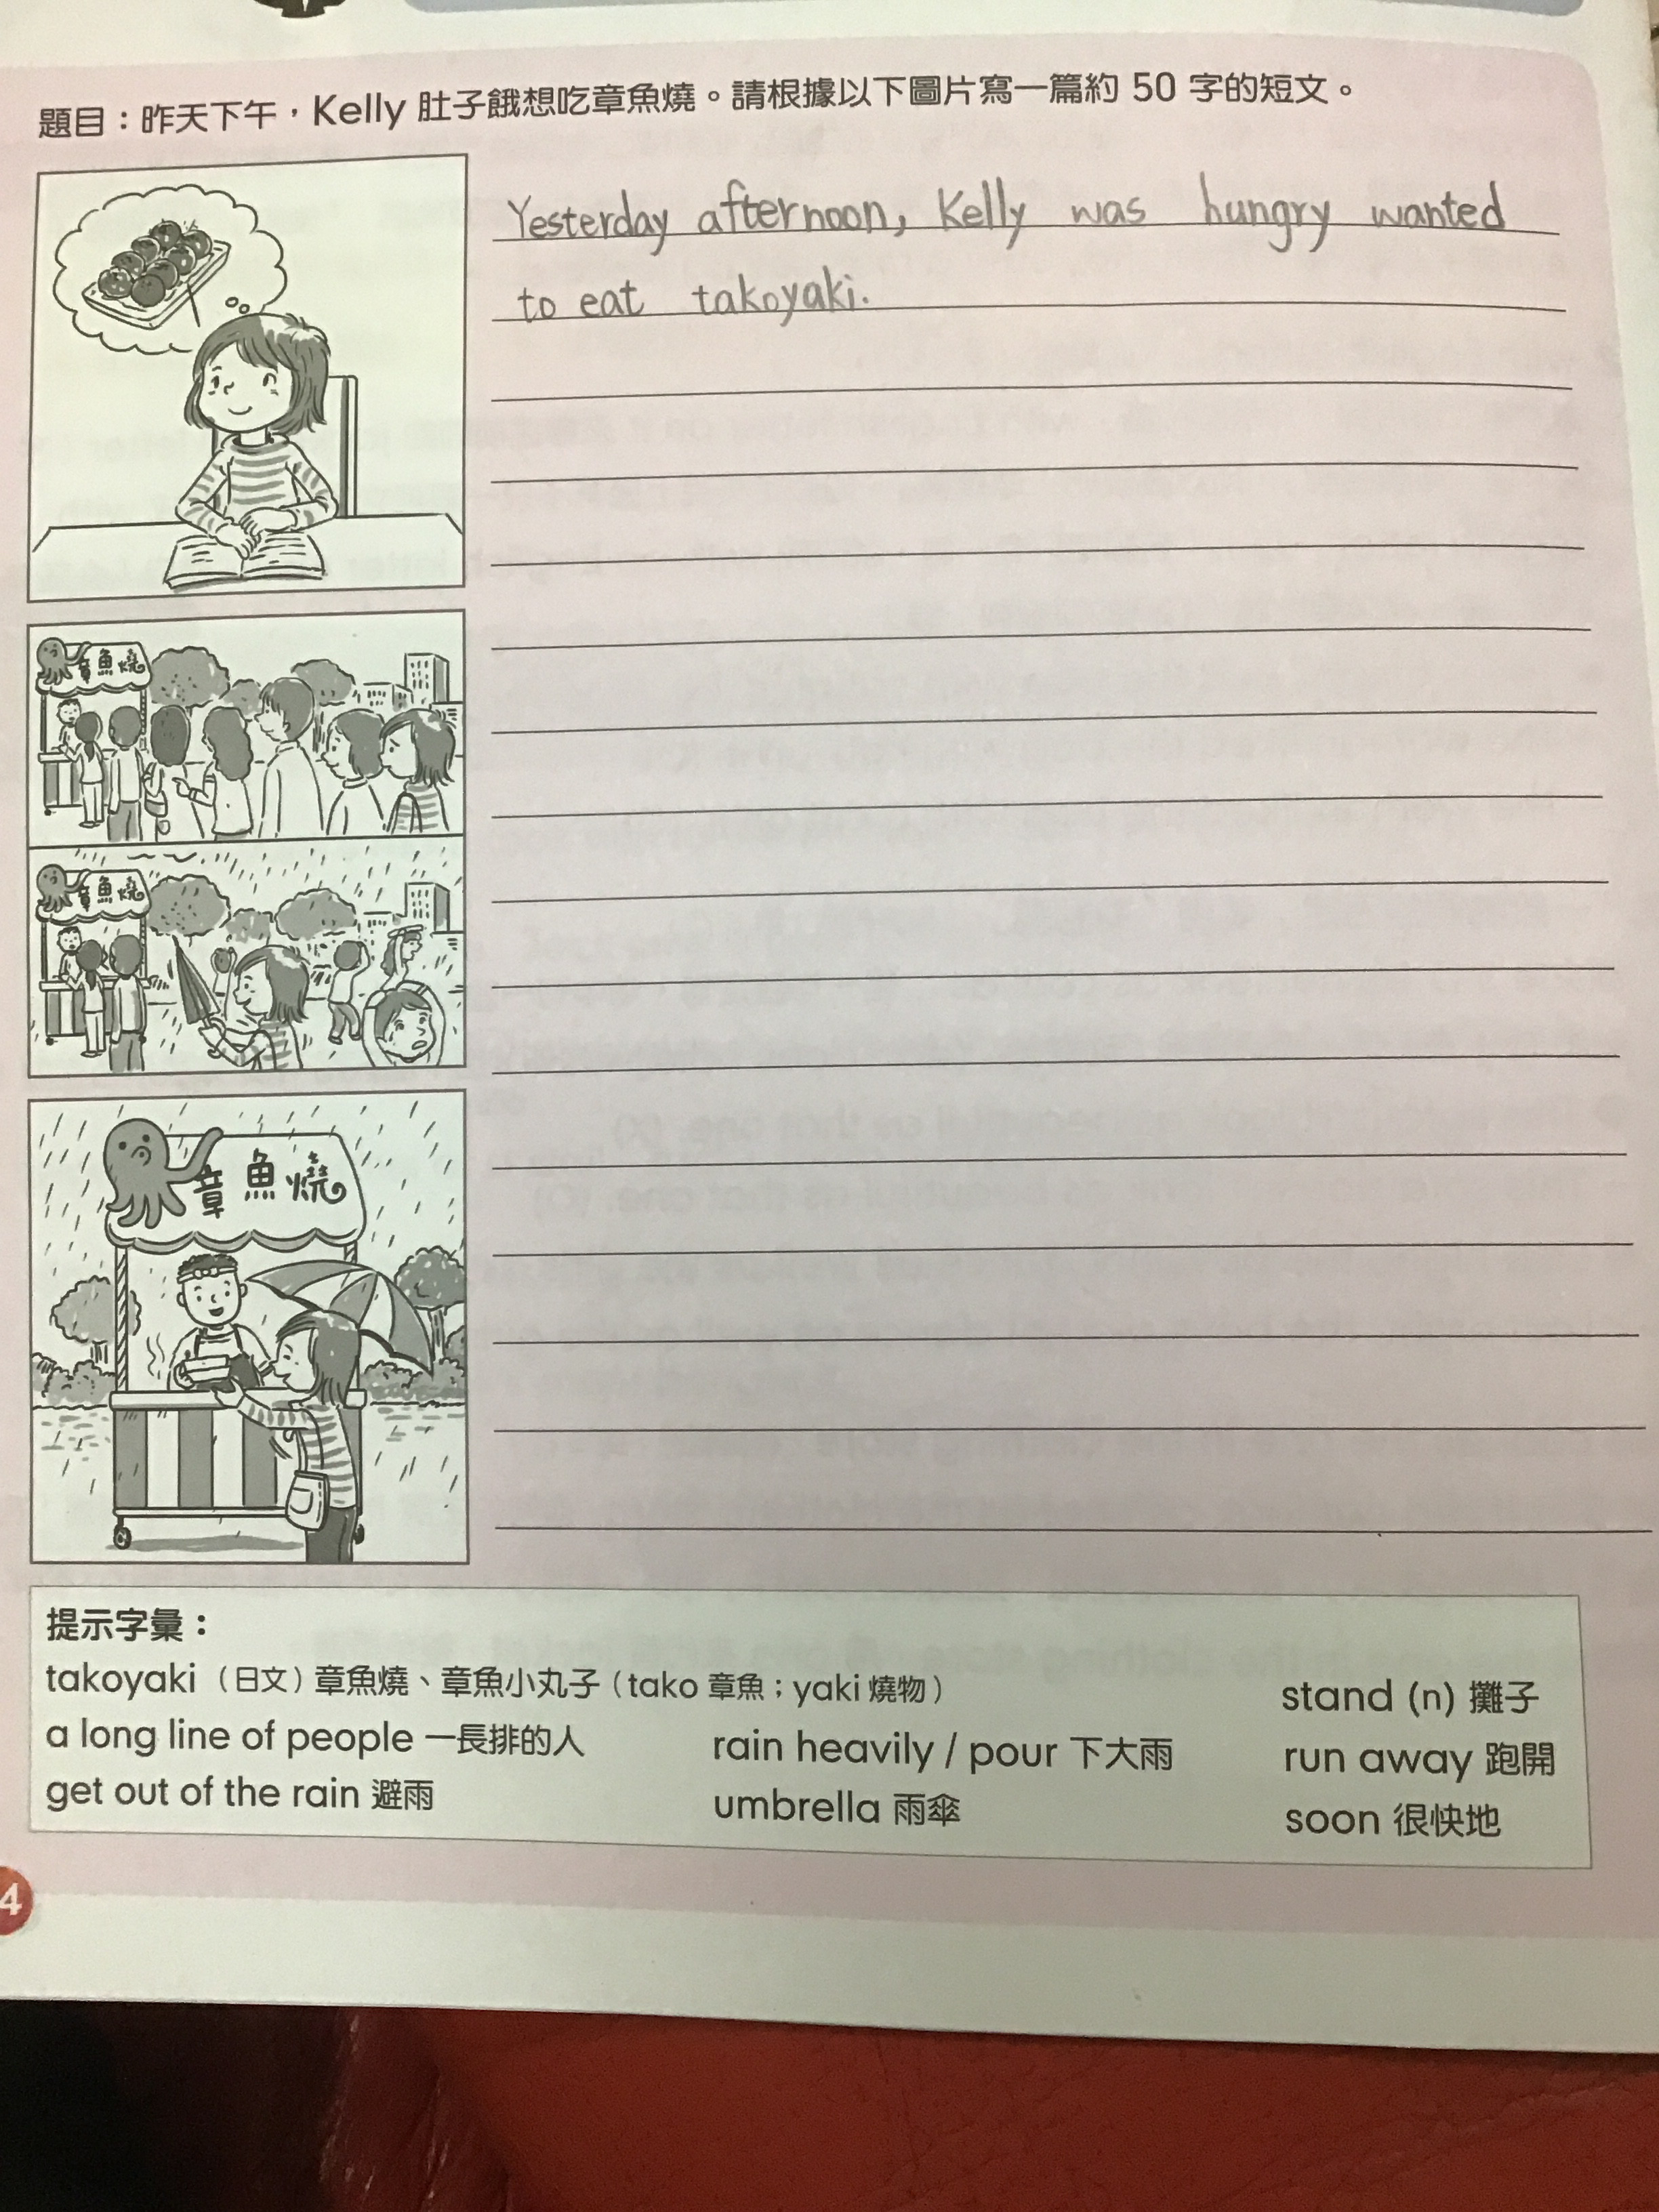 題目：昨天下午，Kelly 肚子餓想吃章魚燒。請根據以下圖片寫一篇約 50 字的短文。
Yesterday afternoon, Kelly was hungry wanted
to eat takoyaki.
章魚燒
章魚燒
章魚燒
提示字彙：
takoyaki （日文）章魚燒、章魚小丸子（tako 章魚；yaki 燒物）
stand (n) 攤子
a long line of people 一長排的人
rain heavily / pour 下大雨
run away 跑開
get out of the rain 避雨
umbrella 雨傘
soon 很快地
4